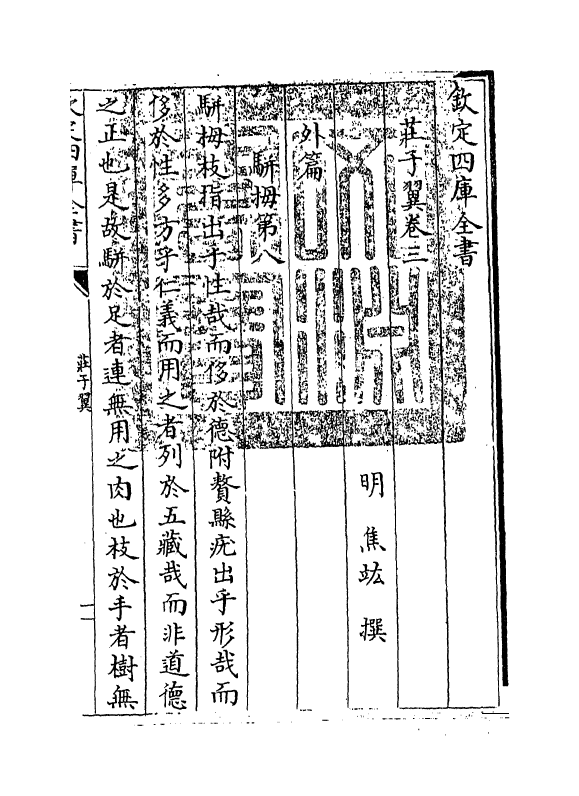 欽定四庫全書
莊子翼卷三
明焦竑撰
外篇
駢拇第八
駢拇枝指出乎性哉而侈於德附贅縣疣出乎形哉而
侈於性多方乎仁義而用之者列於五藏哉而非道德
之正也是故駢於足者連無用之肉也枝於手者樹無
莊子翼
一